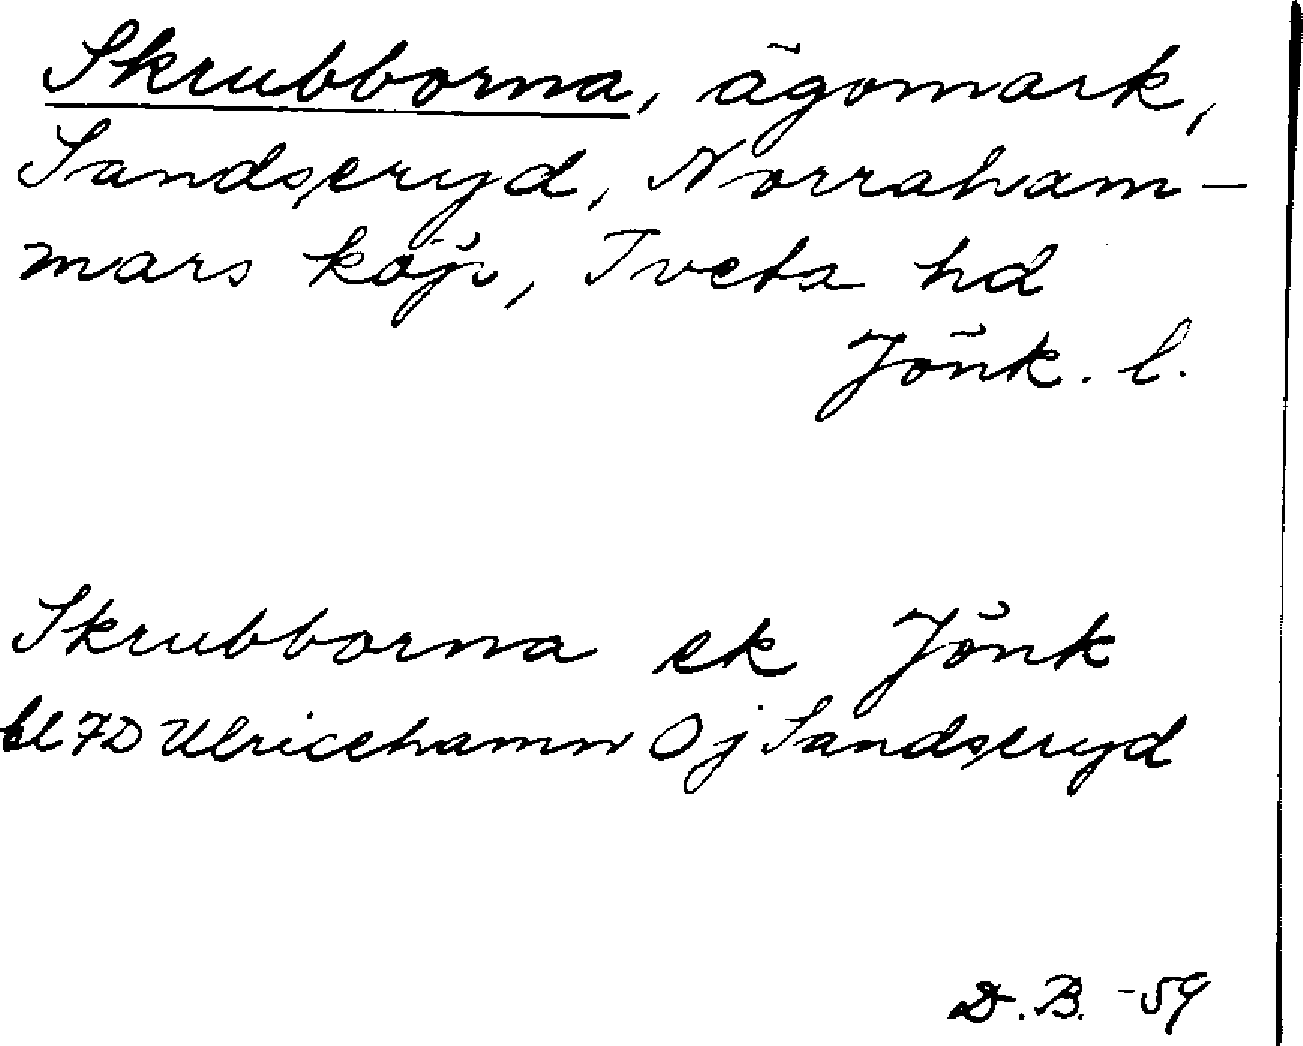 Skrubborna, ägomark,
Sandseryd, Norraham-
mars köp, Tveta hd
Jönk. l.
Skrubborna ek Jönk
bl 7D Ulricehamn Oj Sandseryd
D. B. -59